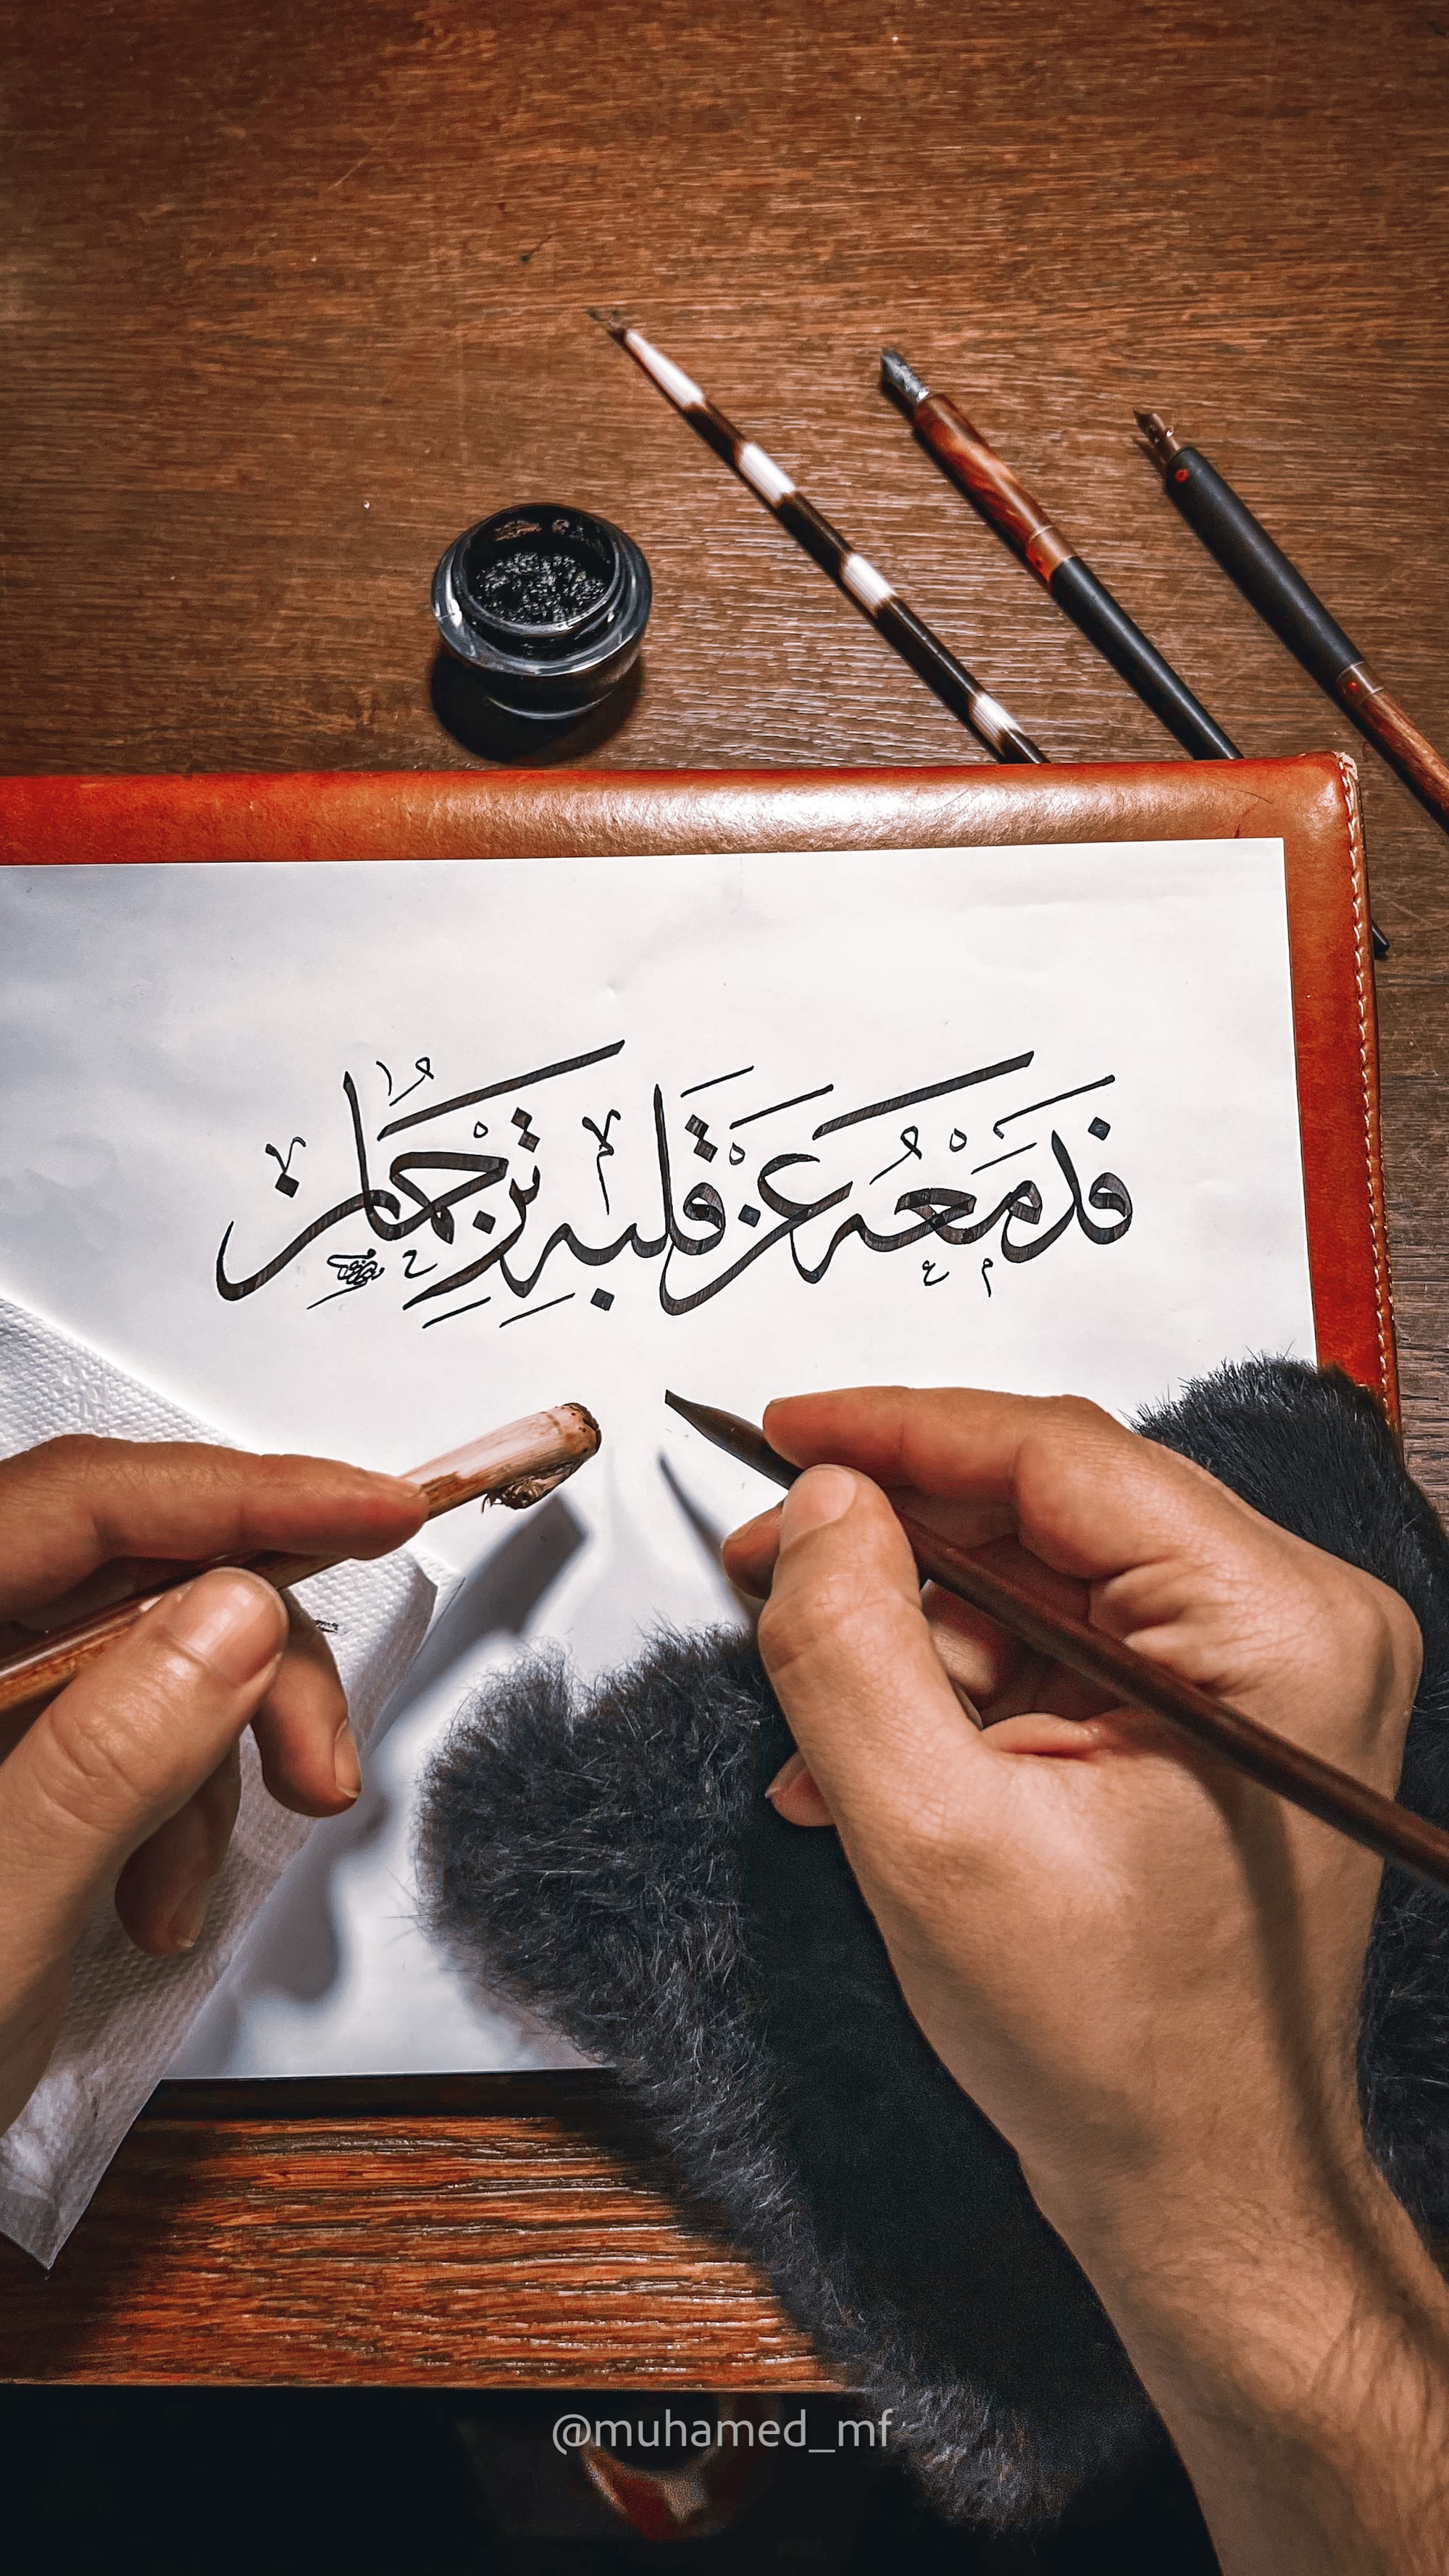 فدمعه عن قلبه ترجمان
@muhamed_mf